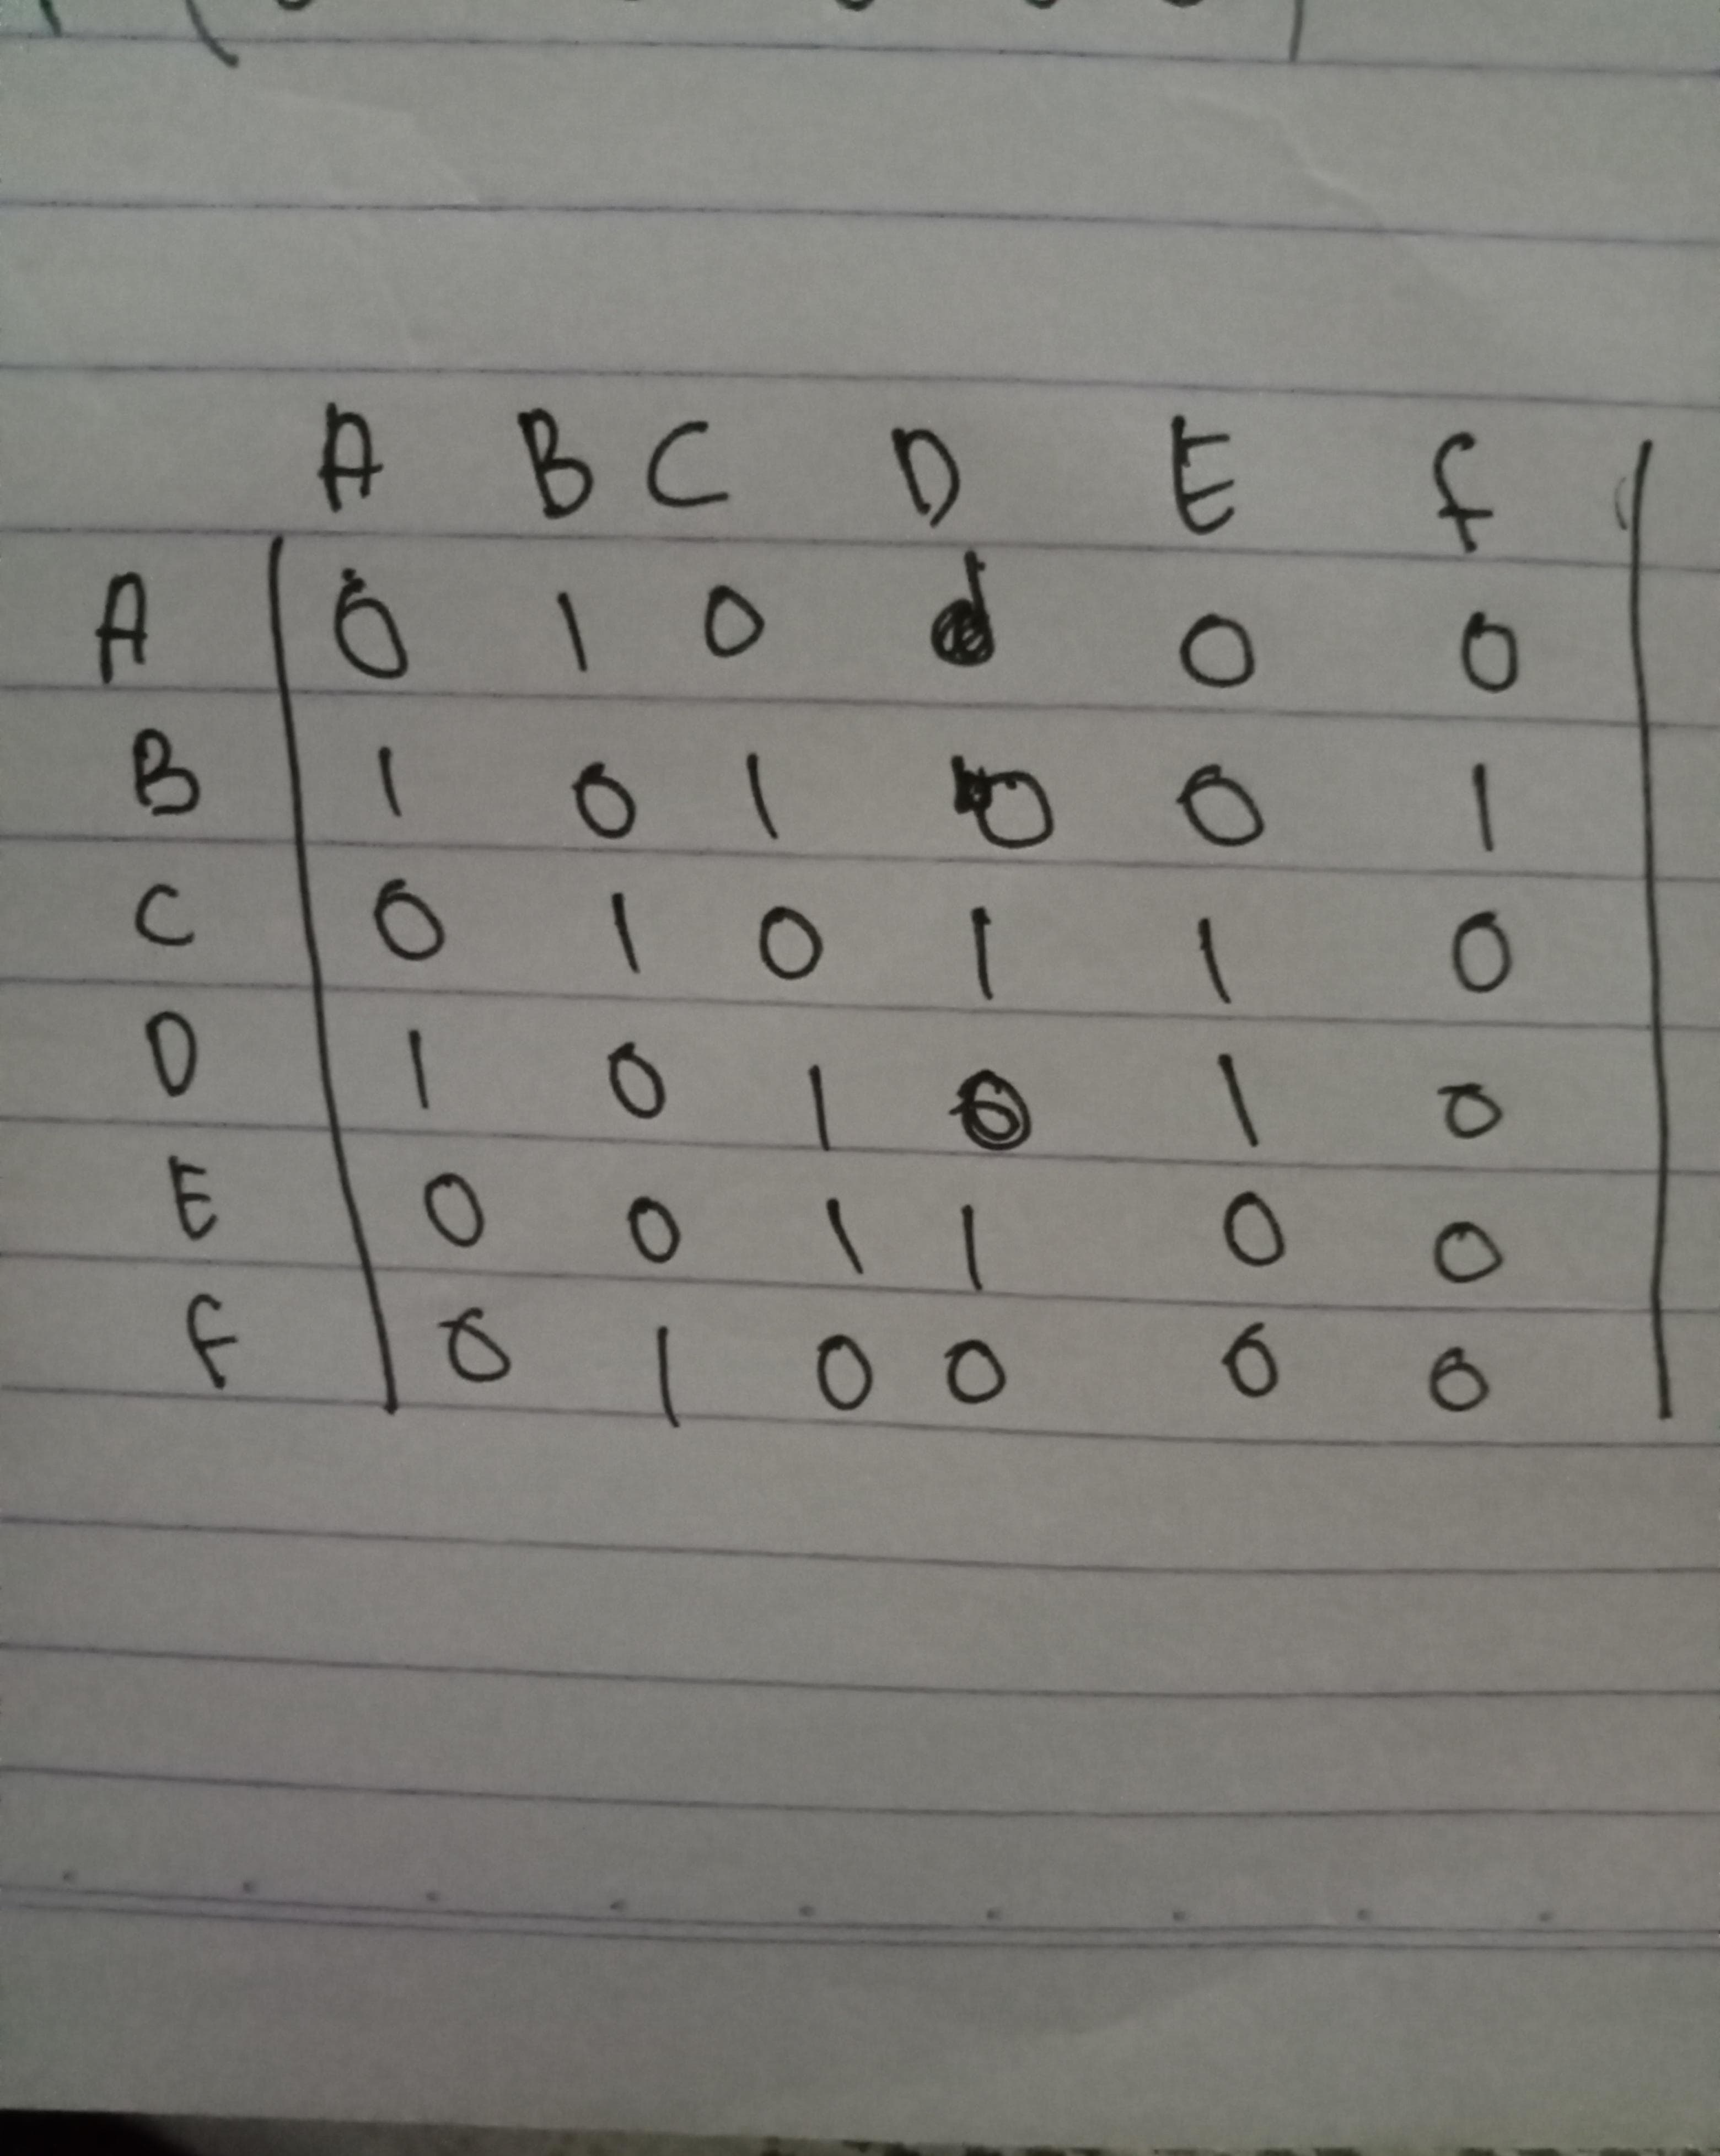 A B C D E F
A 0 1 0 0 0
B 1 0 1 0 0 1
C 0 1 0 1 1 0
D 1 0 1 0 1 0
E 0 0 1 1 0 0
F 0 1 0 0 0 0